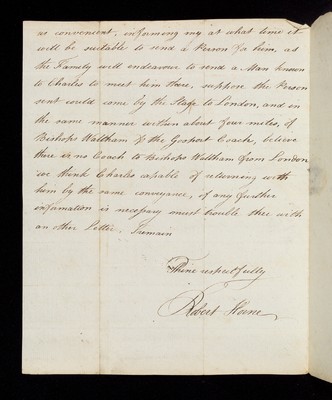 as convenient, informing my at what time it
will be suitable to send a Person for him, as
the Family will endeavour to send a Man known
to Charles to meet him there, suppose the Person
sent could come by the Stage to London, and in
the same manner within about four miles, of
Bishops Waltham by the Gosport Coach, believe
there is no Coach to Bishops Waltham from London
we think Charles capable of returning with
him by the same conveyance, if any further
information is necessary must trouble thee with
an other Letter, I remain
Thine respectfully
Robert